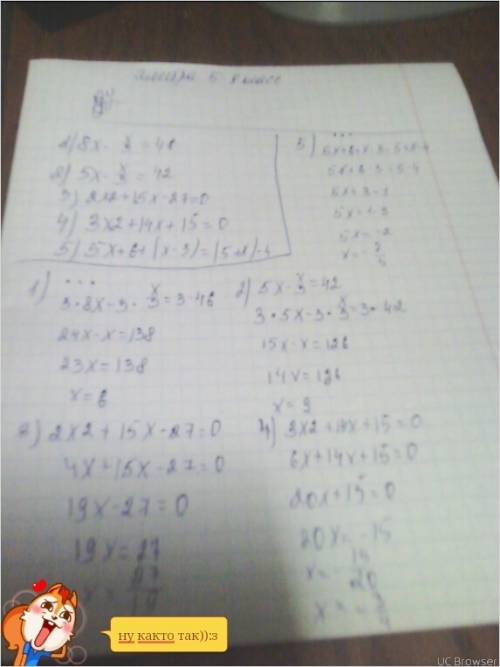 5 класс
1) 8x - x/3 = 46
2) 5x - x/3 = 42
3) 2x2 + 15x - 27 = 0
4) 3x2 + 14x + 15 = 0
5) 5x + 6 + (x - 3) = (5 + x) - 4
1) ...
3 · 8x - 3 · x/3 = 3 · 46
24x - x = 138
23x = 138
x = 6
2) 5x - x/3 = 42
3 · 5x - 3 · x/3 = 3 · 42
15x - x = 126
14x = 126
x = 9
3) 2x2 + 15x - 27 = 0
4x + 15x - 27 = 0
19x - 27 = 0
19x = 27
x = 27/19
4) 3x2 + 14x + 15 = 0
6x + 14x + 15 = 0
20x + 15 = 0
20x = -15
x = -15/20
x = -3/4
5) ...
5x + 6 + x - 3 = 5 + x - 4
5x + 6 - 3 = 5 - 4
5x + 3 = 1
5x = 1 - 3
5x = -2
x = -2/5
ну както так)):з
UC Browser